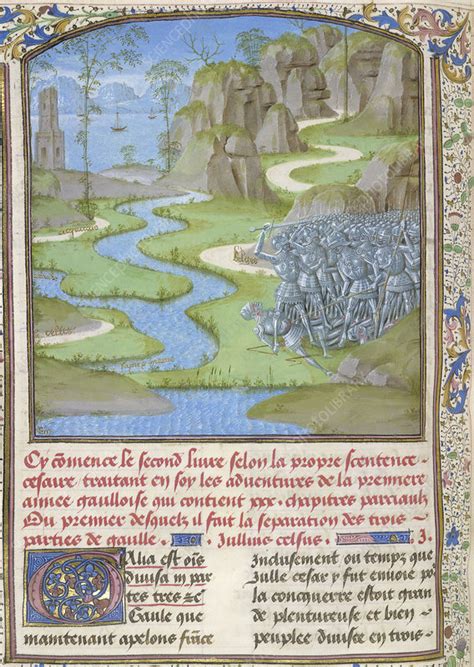 Cy cõmence le second livre selon la propre scentence
cesaire traitant en soy les adventures de la premiere
annee gauloise qui contient xxx. chapitres parciaulx
Du premier desquelz il fait la separation des trois
parties de gaulle. Jullius celsus. J.
Galia est oīs
divisa in par
tes tres zc
Gaule que
maintenant apelons frāce
Inclusement ou tempz que
Julle cesar y fut envoie po
la conquerre estoit gran
de plentureuse et bien
peuplee divisee en trois